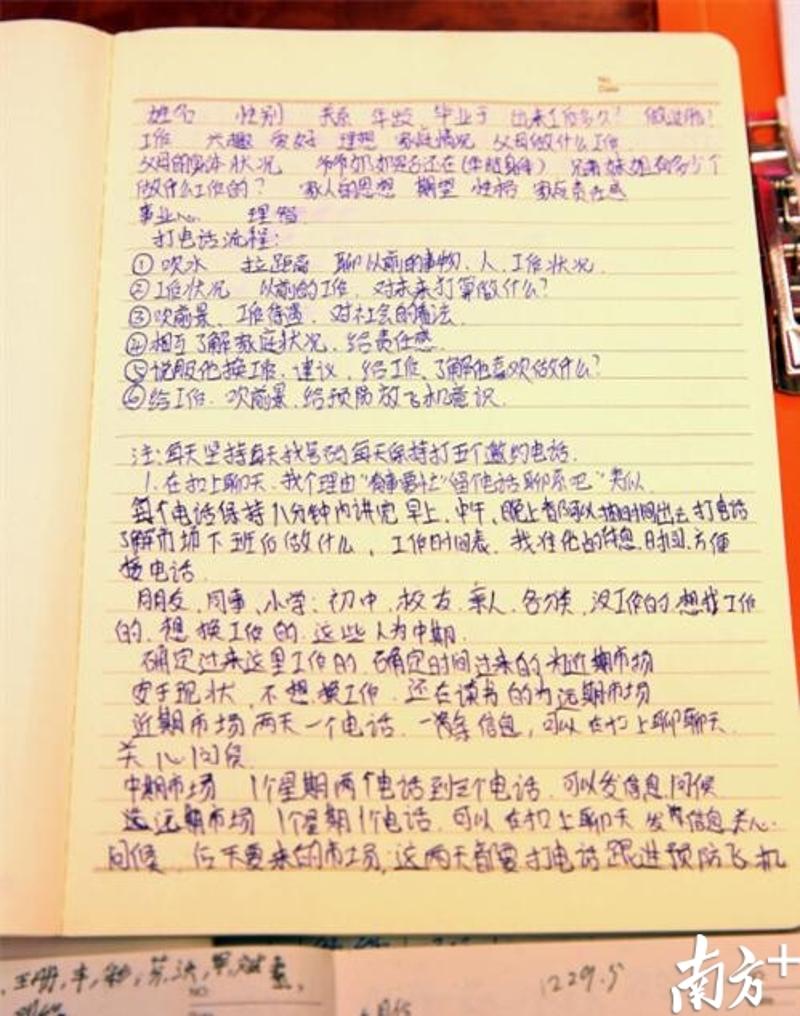 No.
Date
姓名 性别 关系 年龄 毕业于 出来工作多久? 做过啥!
工作 兴趣 爱好 理想 家庭情况 父母做什么工作
父母的身体状况 爷爷奶奶是否还在(年龄身体) 兄弟妹姐有多少个
做什么工作的? 家人的思想 期望 性格 家庭责任感
事业 理智
打电话流程:
①吹水 拉距离 聊以前的事物、人、工作状况
②工作状况 以前的工作、对未来打算做什么?
③吹前景、工作待遇、对社会的看法
④相互了解家庭状况、给责任感
⑤说服他换工作、建议、给工作、了解他喜欢做什么?
⑥给工作、吹前景、给预防放飞机意识
注:每天坚持每天找号码每天保持打五个邀约电话
1.在扣上聊天、找个理由"有事要忙"留个电话聊系吧"类似
每个电话保持八分钟内讲完 早上、中午、晚上都可以抽时间出去打电话
了解市场下班后做什么、工作时间表、找准他的休息时间、方便
接电话
朋友、同事、小学;初中、校友、亲人、各类、没工作的、想找工作
的、想换工作的 这些人为中期
确定过来这里工作的 确定时间过来的为近期市场
安于现状、不想换工作、还在读书的为远期市场
近期市场两天一个电话、一条信息,可以在扣上聊聊天
关心问候
中期市场 1个星期两个电话到三个电话、可以发信息问候
远期市场 1个星期1个电话、可以在扣上聊天 发信息关心
问候、后天要来的市场;这两天都要打电话跟进预防飞机
1229.5
NO:
南方+